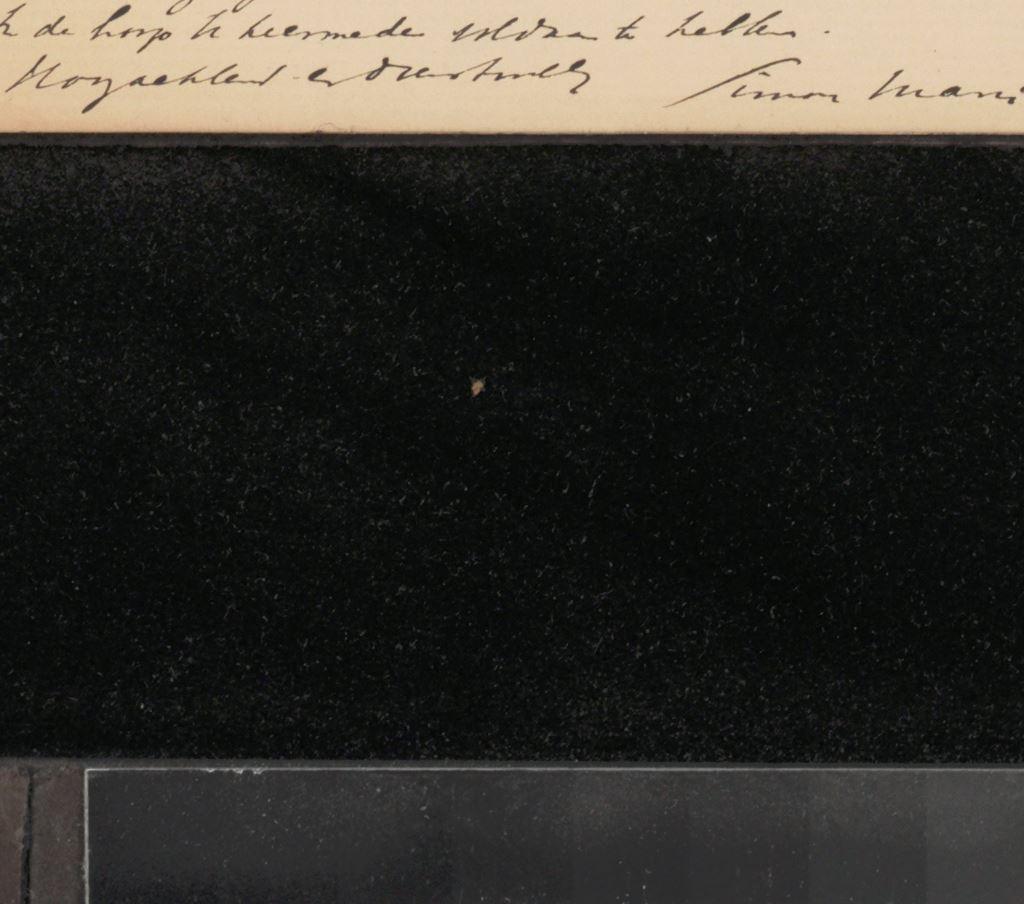 de hoop te hiermede voldaan te hebben.
Hoogachtend en vriendschappelijk Simon Maris